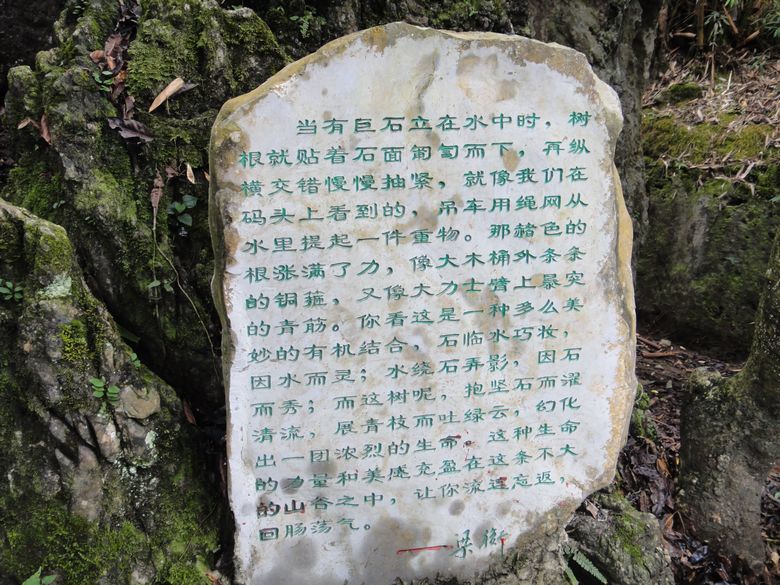 当有巨石立在水中时，树
根就贴着石面匍匐而下，再纵
横交错慢慢抽紧，就像我们在
码头上看到的，吊车用绳网从
水里提起一件重物。那赭色的
根涨满了力，像大木桶外条条
的铜箍，又像大力士臂上暴突
的青筋。你看这是一种多么美
妙的有机结合，石临水巧妆，
因水而灵；水绕石弄影，因石
而秀；而这树呢，抱坚石而濯
清流，展青枝而吐绿云，幻化
出一团浓烈的生命。这种生命
的力量和美感充盈在这条不大
的山谷之中，让你流连忘返，
回肠荡气。
——梁衡